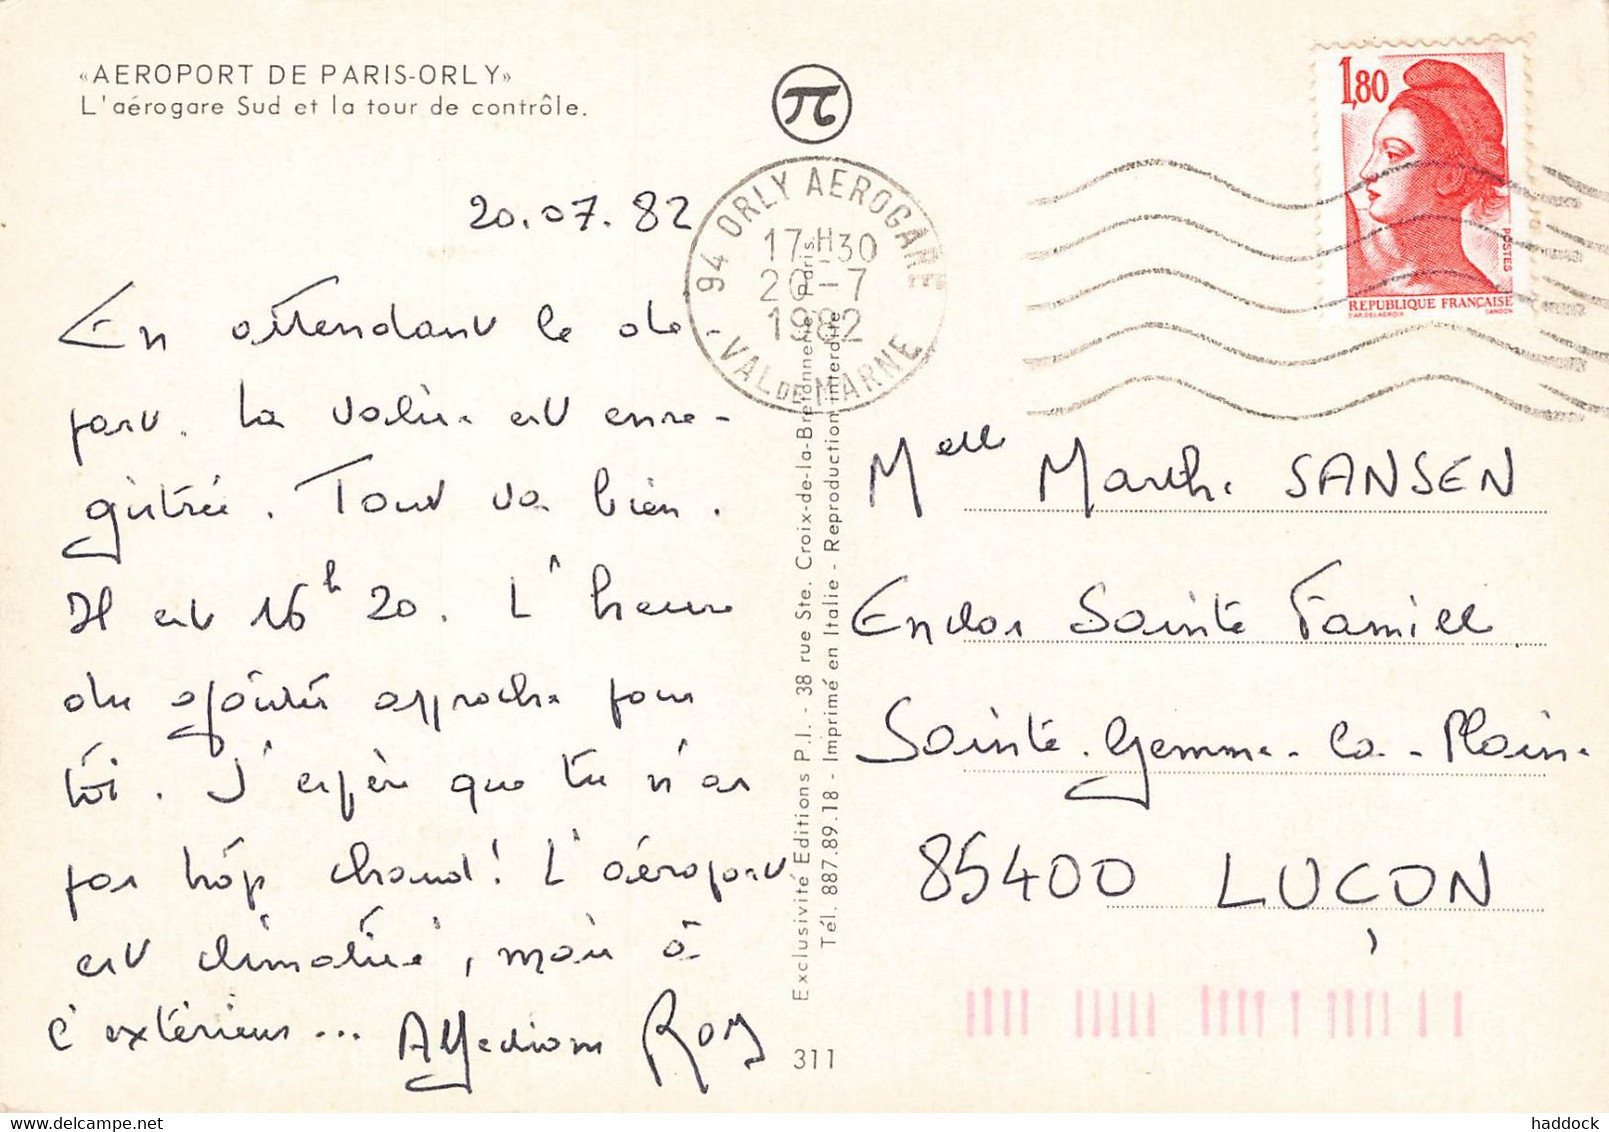 «AEROPORT DE PARIS-ORLY»
L'aérogare Sud et la tour de contrôle.
20.07.82
En attendant le dé-
part. La valise est enre-
gistrée. Tout va bien.
Il est 16h20. L'heure
du goûter approche pour
toi. J'espère que tu n'as
pas trop chaud! L'aéroport
est climatisé, mais à
l'extérieur... Affections
94 ORLY AEROGARE
17H30
20-7
1982
VAL DE MARNE
Exclusivité Editions P.I. - 38 rue Ste. Croix-de-la-Bretonnerie Paris.
Tél. 887.89.18 - Imprimé en Italie - Reproduction interdite
311
1,80
POSTES
REPUBLIQUE FRANÇAISE
D'AP. DELACROIX
GANDON
Melle Marthe SANSEN
Enclos Sainte Famille
Sainte-Gemme-la-Plaine
85400 LUÇON
haddock